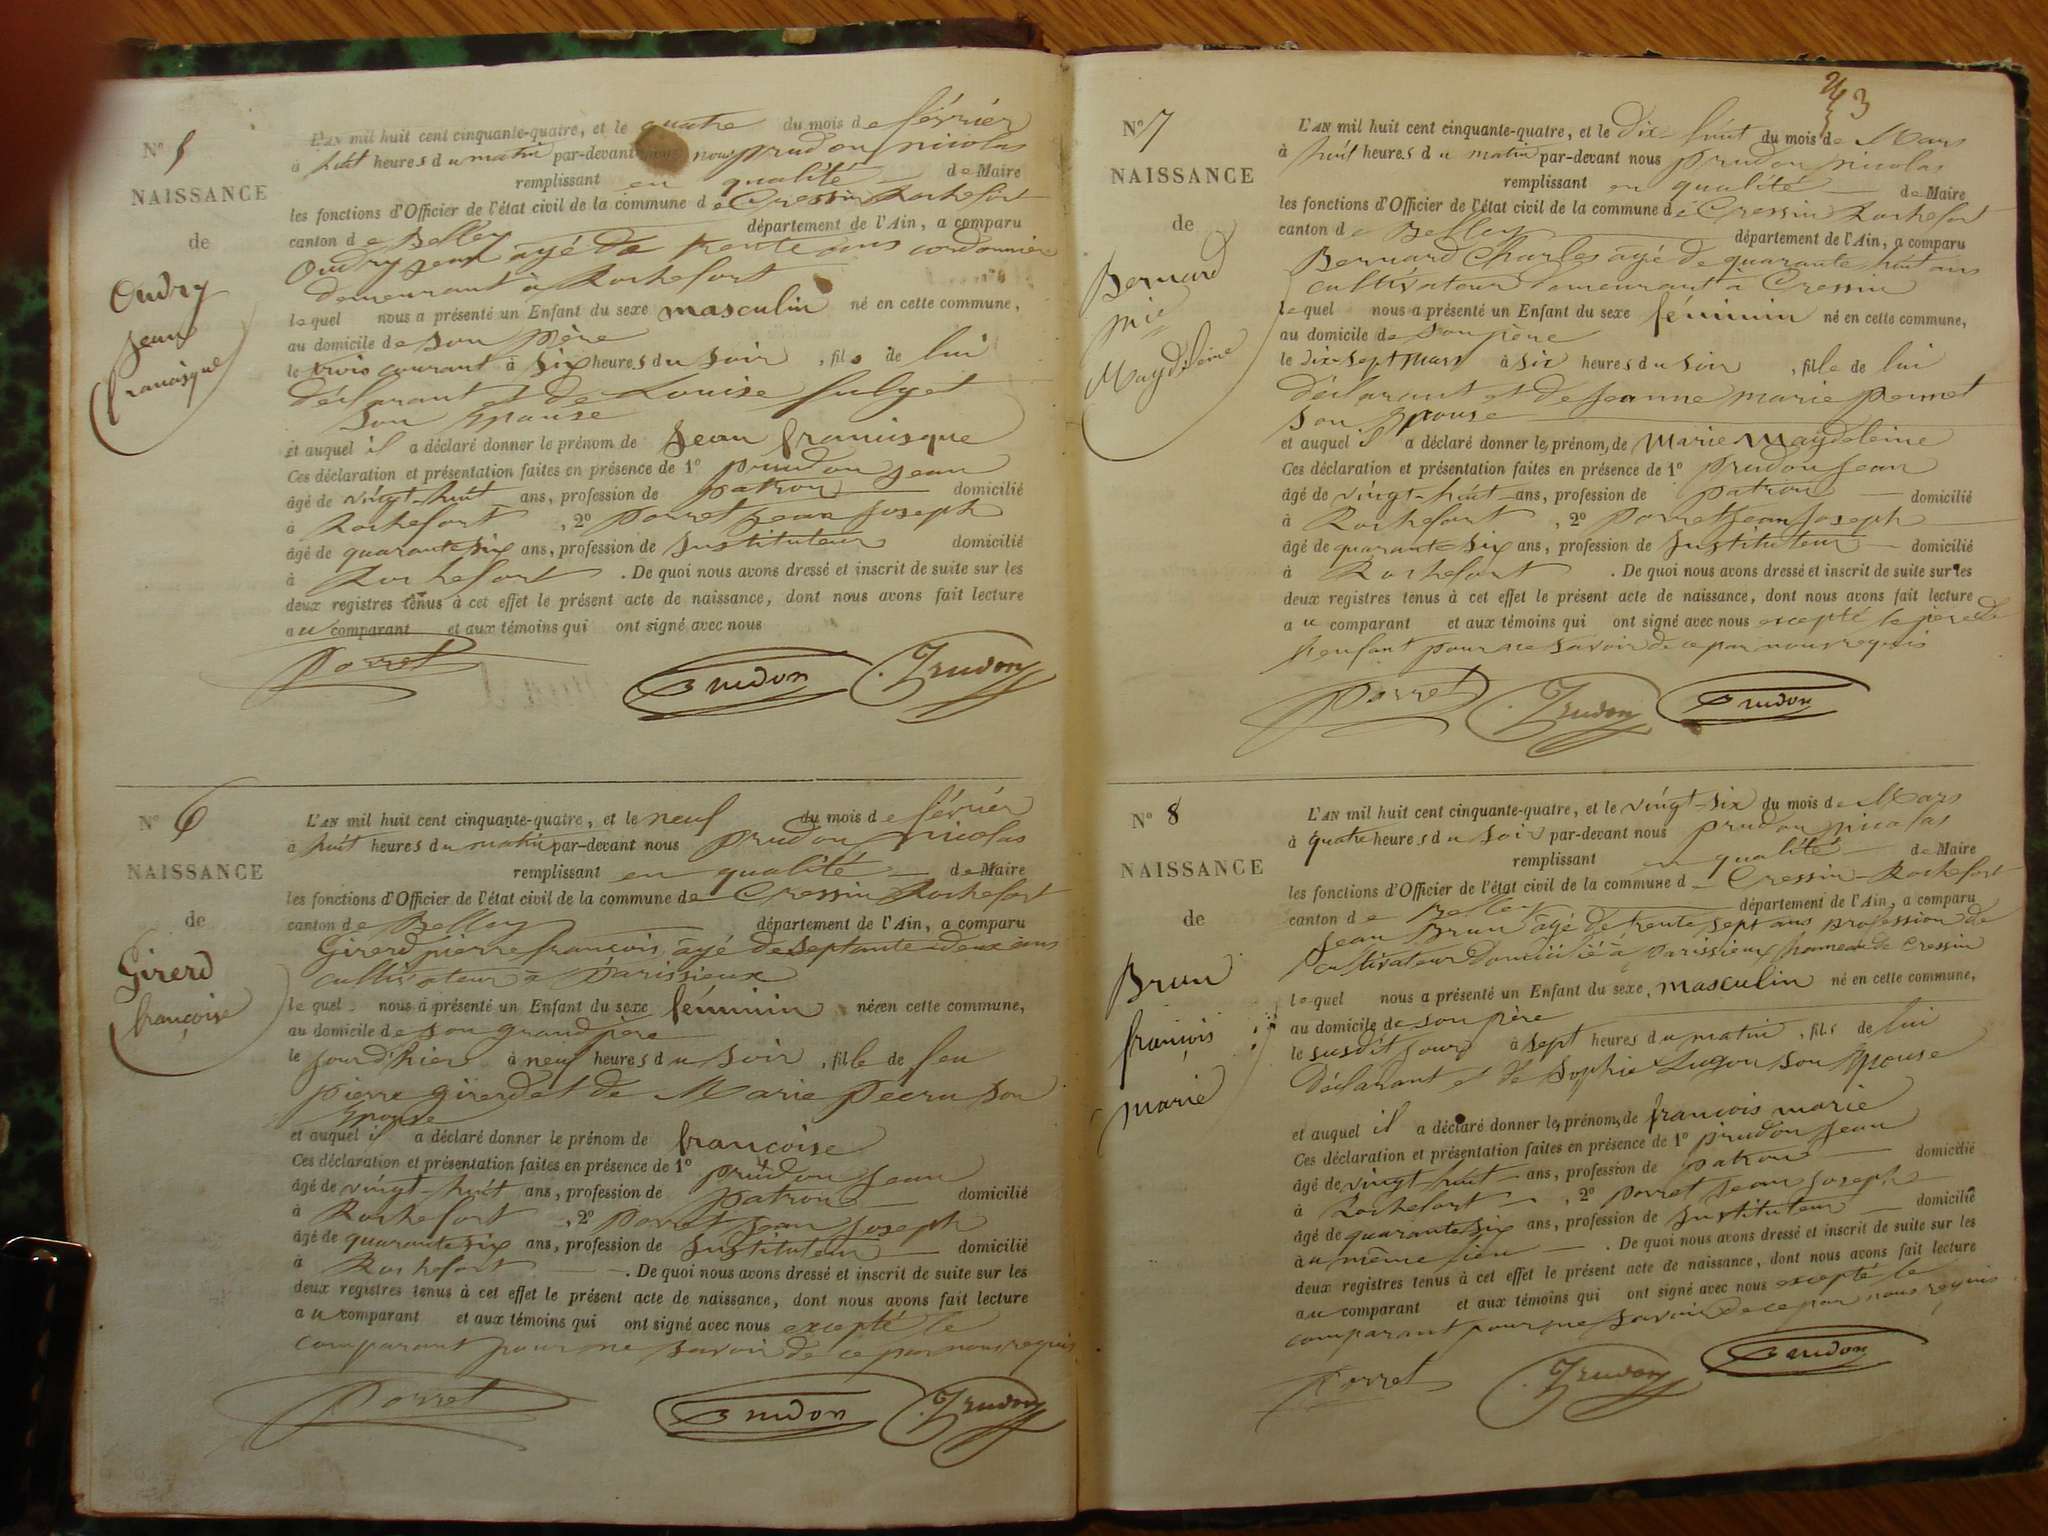 N° 5
NAISSANCE
de
Oudry
Jean
francisque
L'AN mil huit cent cinquante-quatre, et le quatre du mois de février
à huit heures du matin par-devant nous prudon nicolas
remplissant en qualité de Maire
les fonctions d'Officier de l'état civil de la commune de Cressin Rochefort
canton de Belley département de l'Ain, a comparu
Oudry Jean agé de trente ans cordonnier
demeurant à Rochefort
lequel nous a présenté un Enfant du sexe masculin né en cette commune,
au domicile de son père
le trois courant à six heures du soir, fils de lui
déclarant et de Louise fulget
son épouse
et auquel il a déclaré donner le prénom de Jean francisque
Ces déclaration et présentation faites en présence de 1° prudon Jean
âgé de vingt-huit ans, profession de patron domicilié
à Rochefort, 2° porret Jean Joseph
âgé de quarante six ans, profession de Instituteur domicilié
à Rochefort. De quoi nous avons dressé et inscrit de suite sur les
deux registres tenus à cet effet le présent acte de naissance, dont nous avons fait lecture
au comparant et aux témoins qui ont signé avec nous
Porret Prudon Prudon
N° 6
NAISSANCE
de
Girerd
françoise
L'AN mil huit cent cinquante-quatre, et le neuf du mois de février
à huit heures du matin par-devant nous prudon nicolas
remplissant en qualité de Maire
les fonctions d'Officier de l'état civil de la commune de Cressin Rochefort
canton de Belley département de l'Ain, a comparu
Girerd pierre françois, agé de septante deux ans
cultivateur à parissieux
lequel nous a présenté un Enfant du sexe féminin née en cette commune,
au domicile de son grand père
le jour d'hier à neuf heures du soir, fille de feu
pierre girerd et de Marie pecru son
épouse
et auquel il a déclaré donner le prénom de françoise
Ces déclaration et présentation faites en présence de 1° prudon Jean
âgé de vingt-huit ans, profession de patron domicilié
à Rochefort, 2° porret Jean Joseph
âgé de quarante six ans, profession de Instituteur domicilié
à Rochefort. De quoi nous avons dressé et inscrit de suite sur les
deux registres tenus à cet effet le présent acte de naissance, dont nous avons fait lecture
au comparant et aux témoins qui ont signé avec nous excepté le
comparant pour ne savoir de ce par nous requis
Porret Prudon Prudon
3
N° 7
NAISSANCE
de
Bernard
mie
Magdeleine
L'AN mil huit cent cinquante-quatre, et le dix huit du mois de Mars
à huit heures du matin par-devant nous prudon nicolas
remplissant en qualité de Maire
les fonctions d'Officier de l'état civil de la commune de Cressin Rochefort
canton de Belley département de l'Ain, a comparu
Bernard Charles agé de quarante huit ans
cultivateur demeurant à Cressin
lequel nous a présenté un Enfant du sexe féminin né en cette commune,
au domicile de son père
le dix sept mars à six heures du soir, fille de lui
déclarant et de Jeanne marie pernet
son épouse
et auquel il a déclaré donner les prénoms de Marie Magdeleine
Ces déclaration et présentation faites en présence de 1° prudon Jean
âgé de vingt-huit ans, profession de patron domicilié
à Rochefort, 2° porret Jean Joseph
âgé de quarante six ans, profession de Instituteur domicilié
à Rochefort. De quoi nous avons dressé et inscrit de suite sur les
deux registres tenus à cet effet le présent acte de naissance, dont nous avons fait lecture
au comparant et aux témoins qui ont signé avec nous excepté le père de
l'enfant pour ne savoir de ce par nous requis
Porret Prudon Prudon
N° 8
NAISSANCE
de
Brun
françois
marie
L'AN mil huit cent cinquante-quatre, et le vingt-six du mois de Mars
à quatre heures du soir par-devant nous prudon nicolas
remplissant en qualité de Maire
les fonctions d'Officier de l'état civil de la commune d Cressin-Rochefort
canton de Belley département de l'Ain, a comparu
Jean Brun âgé de trente sept ans profession de
cultivateur domicilié à parissieux hameau de Cressin
lequel nous a présenté un Enfant du sexe masculin né en cette commune,
au domicile de son père
le susdit jour à sept heures du matin, fils de lui
déclarant et de Sophie Lugon son épouse
et auquel il a déclaré donner les prénoms de françois marie
Ces déclaration et présentation faites en présence de 1° prudon Jean
âgé de vingt huit ans, profession de patron domicilié
à Rochefort, 2° porret Jean Joseph
âgé de quarante six ans, profession de Instituteur domicilié
à au même lieu. De quoi nous avons dressé et inscrit de suite sur les
deux registres tenus à cet effet le présent acte de naissance, dont nous avons fait lecture
au comparant et aux témoins qui ont signé avec nous excepté le
comparant pour ne savoir de ce par nous requis
Porret Prudon Prudon